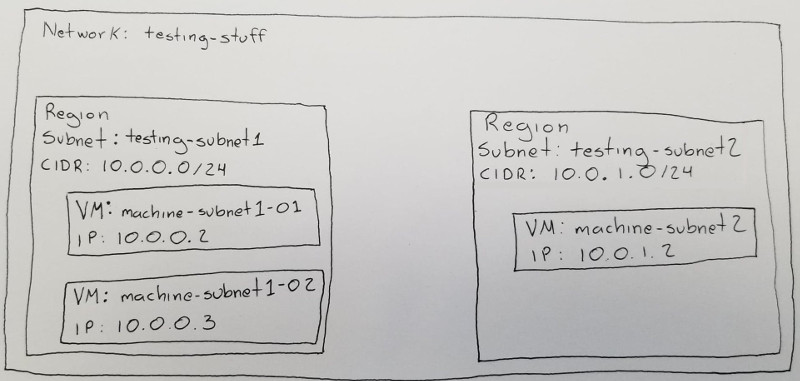 Network: testing-stuff
Region
Subnet: testing-subnet1
CIDR: 10.0.0.0/24
VM: machine-subnet1-01
IP: 10.0.0.2
VM: machine-subnet1-02
IP: 10.0.0.3
Region
Subnet: testing-subnet2
CIDR: 10.0.1.0/24
VM: machine-subnet2
IP: 10.0.1.2